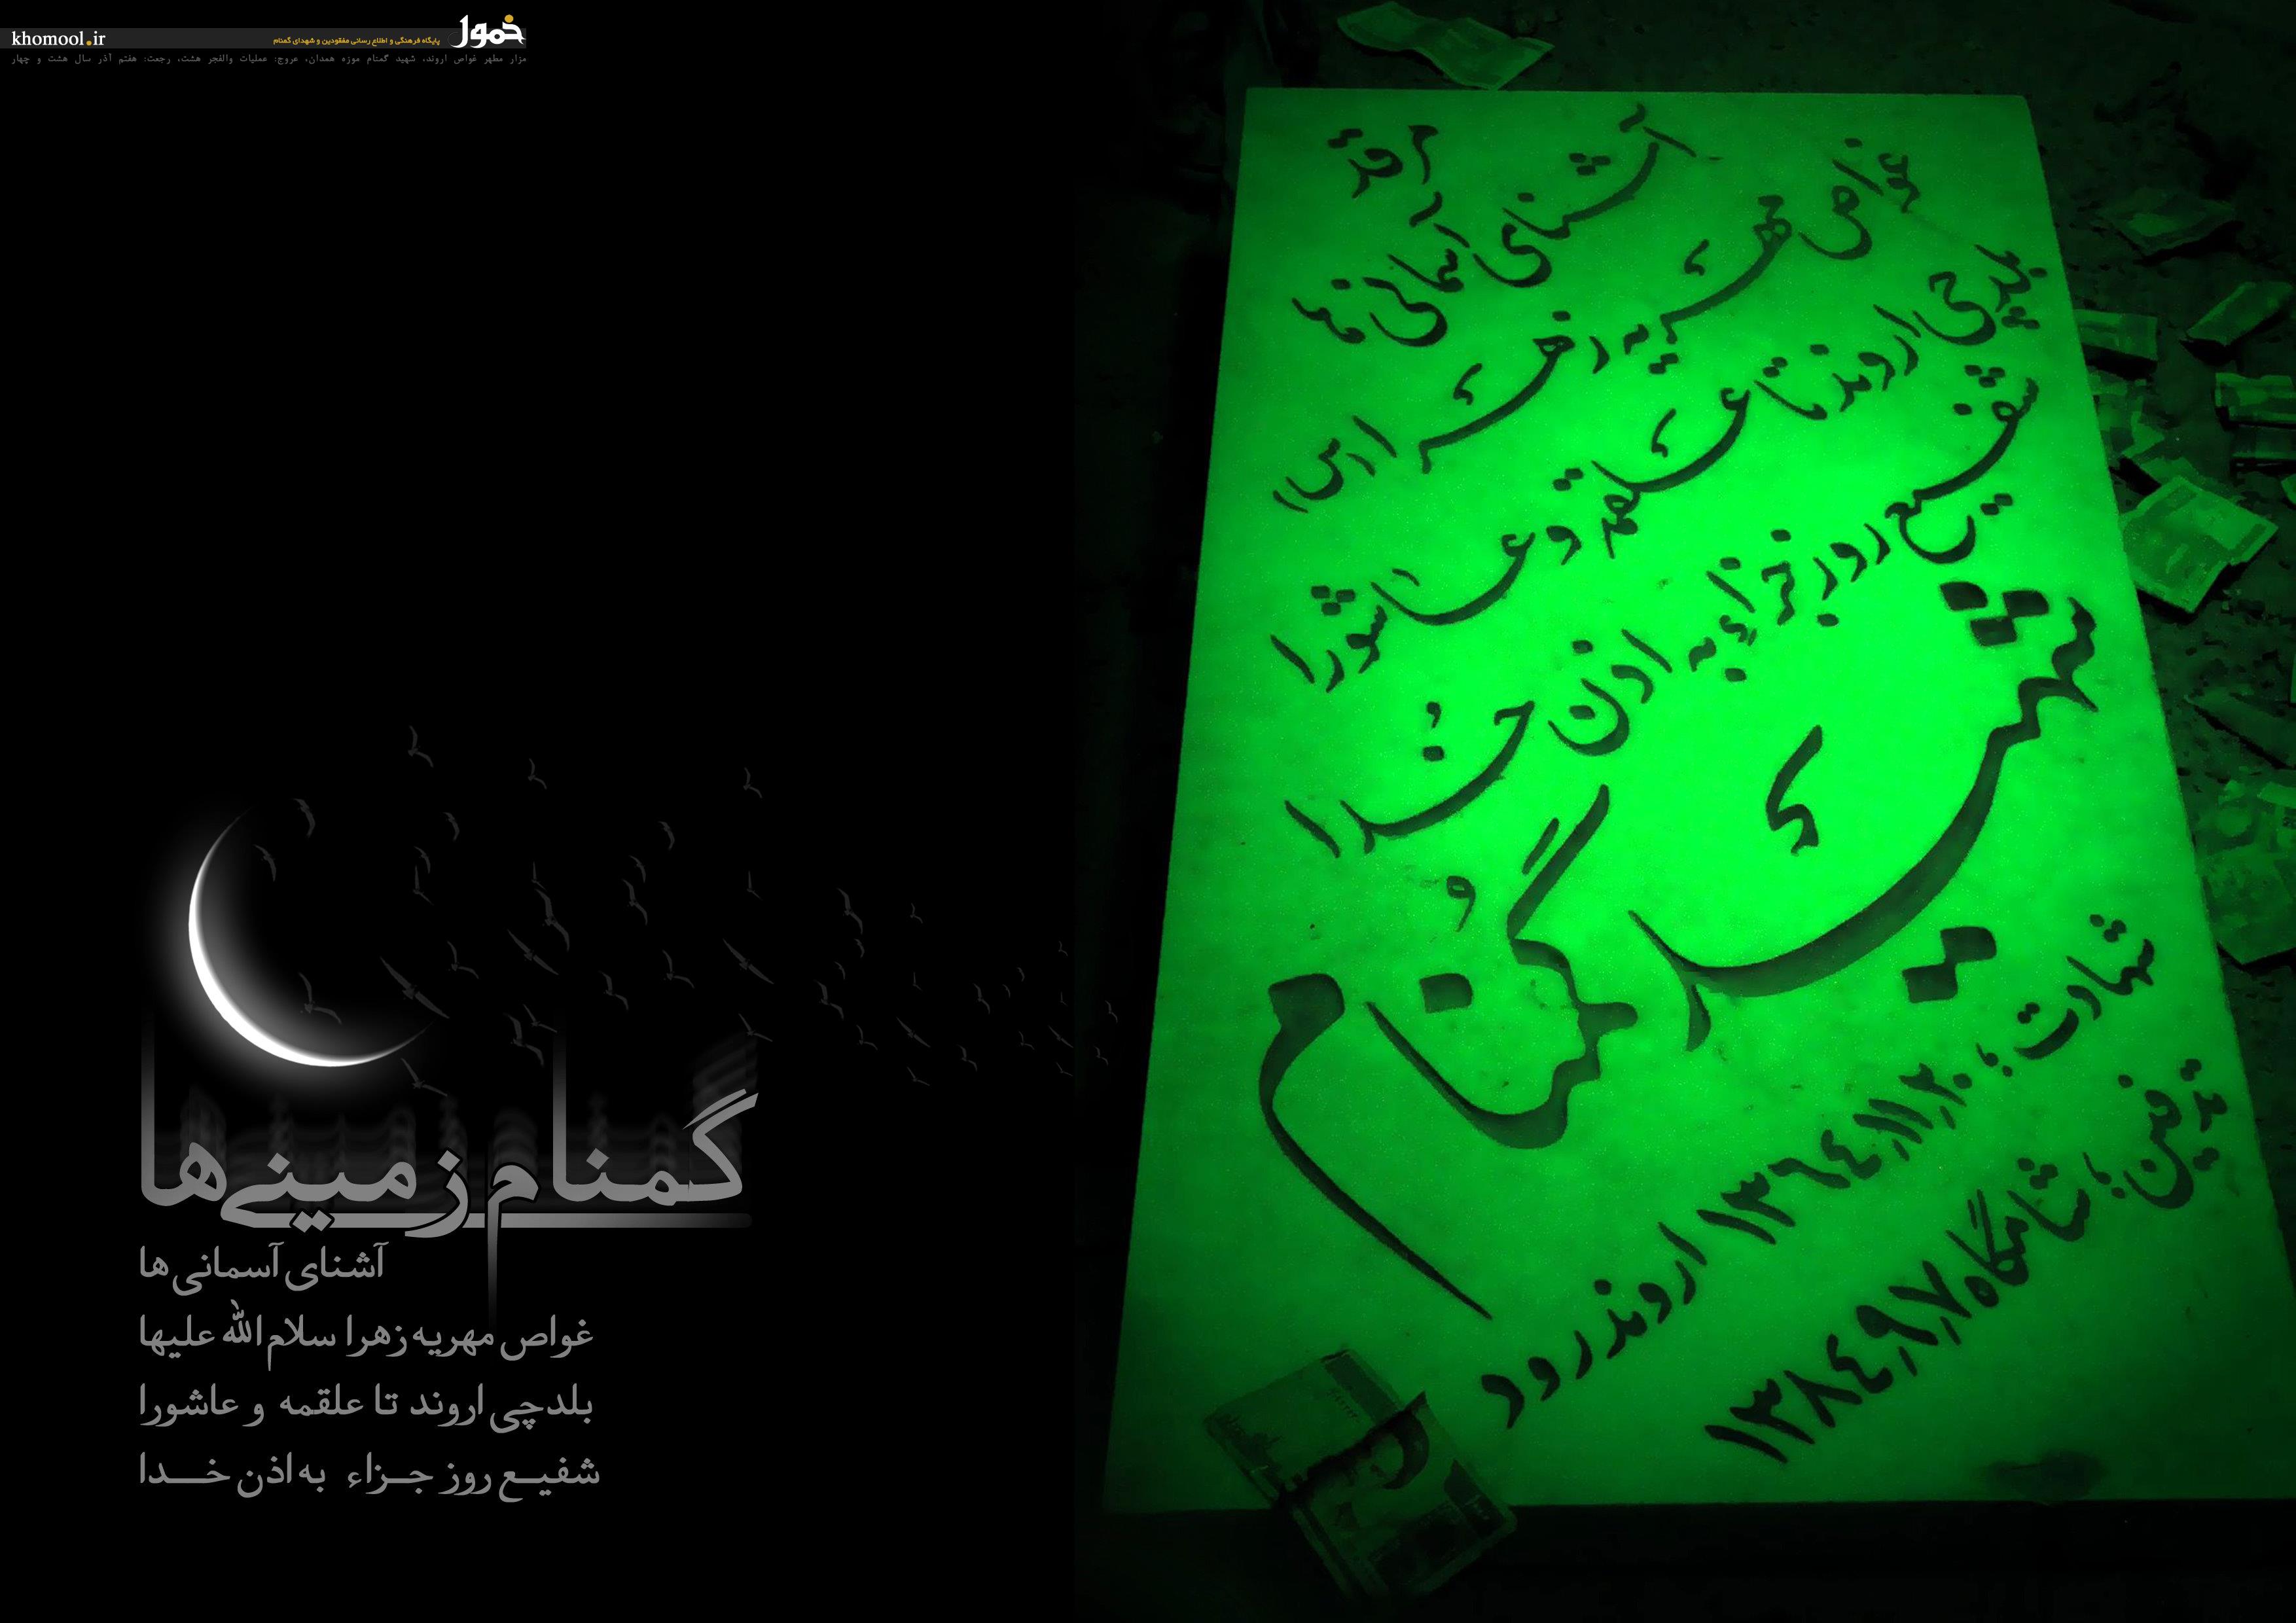 خمول
khomool.ir
پایگاه فرهنگی و اطلاع رسانی مفقودین و شهدای گمنام
مزار مطهر غواص اروند، شهید گمنام موزه همدان، عروج: عملیات والفجر هشت، رجعت: هفتم آذر سال هشت و چهار
گمنام زمینی‌ها
آشنای آسمانی‌ها
غواص مهریه زهرا سلام الله علیها
بلدچی اروند تا علقمه و عاشورا
شفیع روز جزاء به اذن خدا
مرقد
آشنای آسمانی
غواص مهریه زهرا
بلدچی اروند تا علقمه و عاشورا
شفیع روز جزاء به اذن خدا
شهید گمنام
شهادت؛ ۱۳۶۴،۱۱،۲۰ اروندرود
تدفین؛ شامگاه ۱۳۸۴،۹،۷